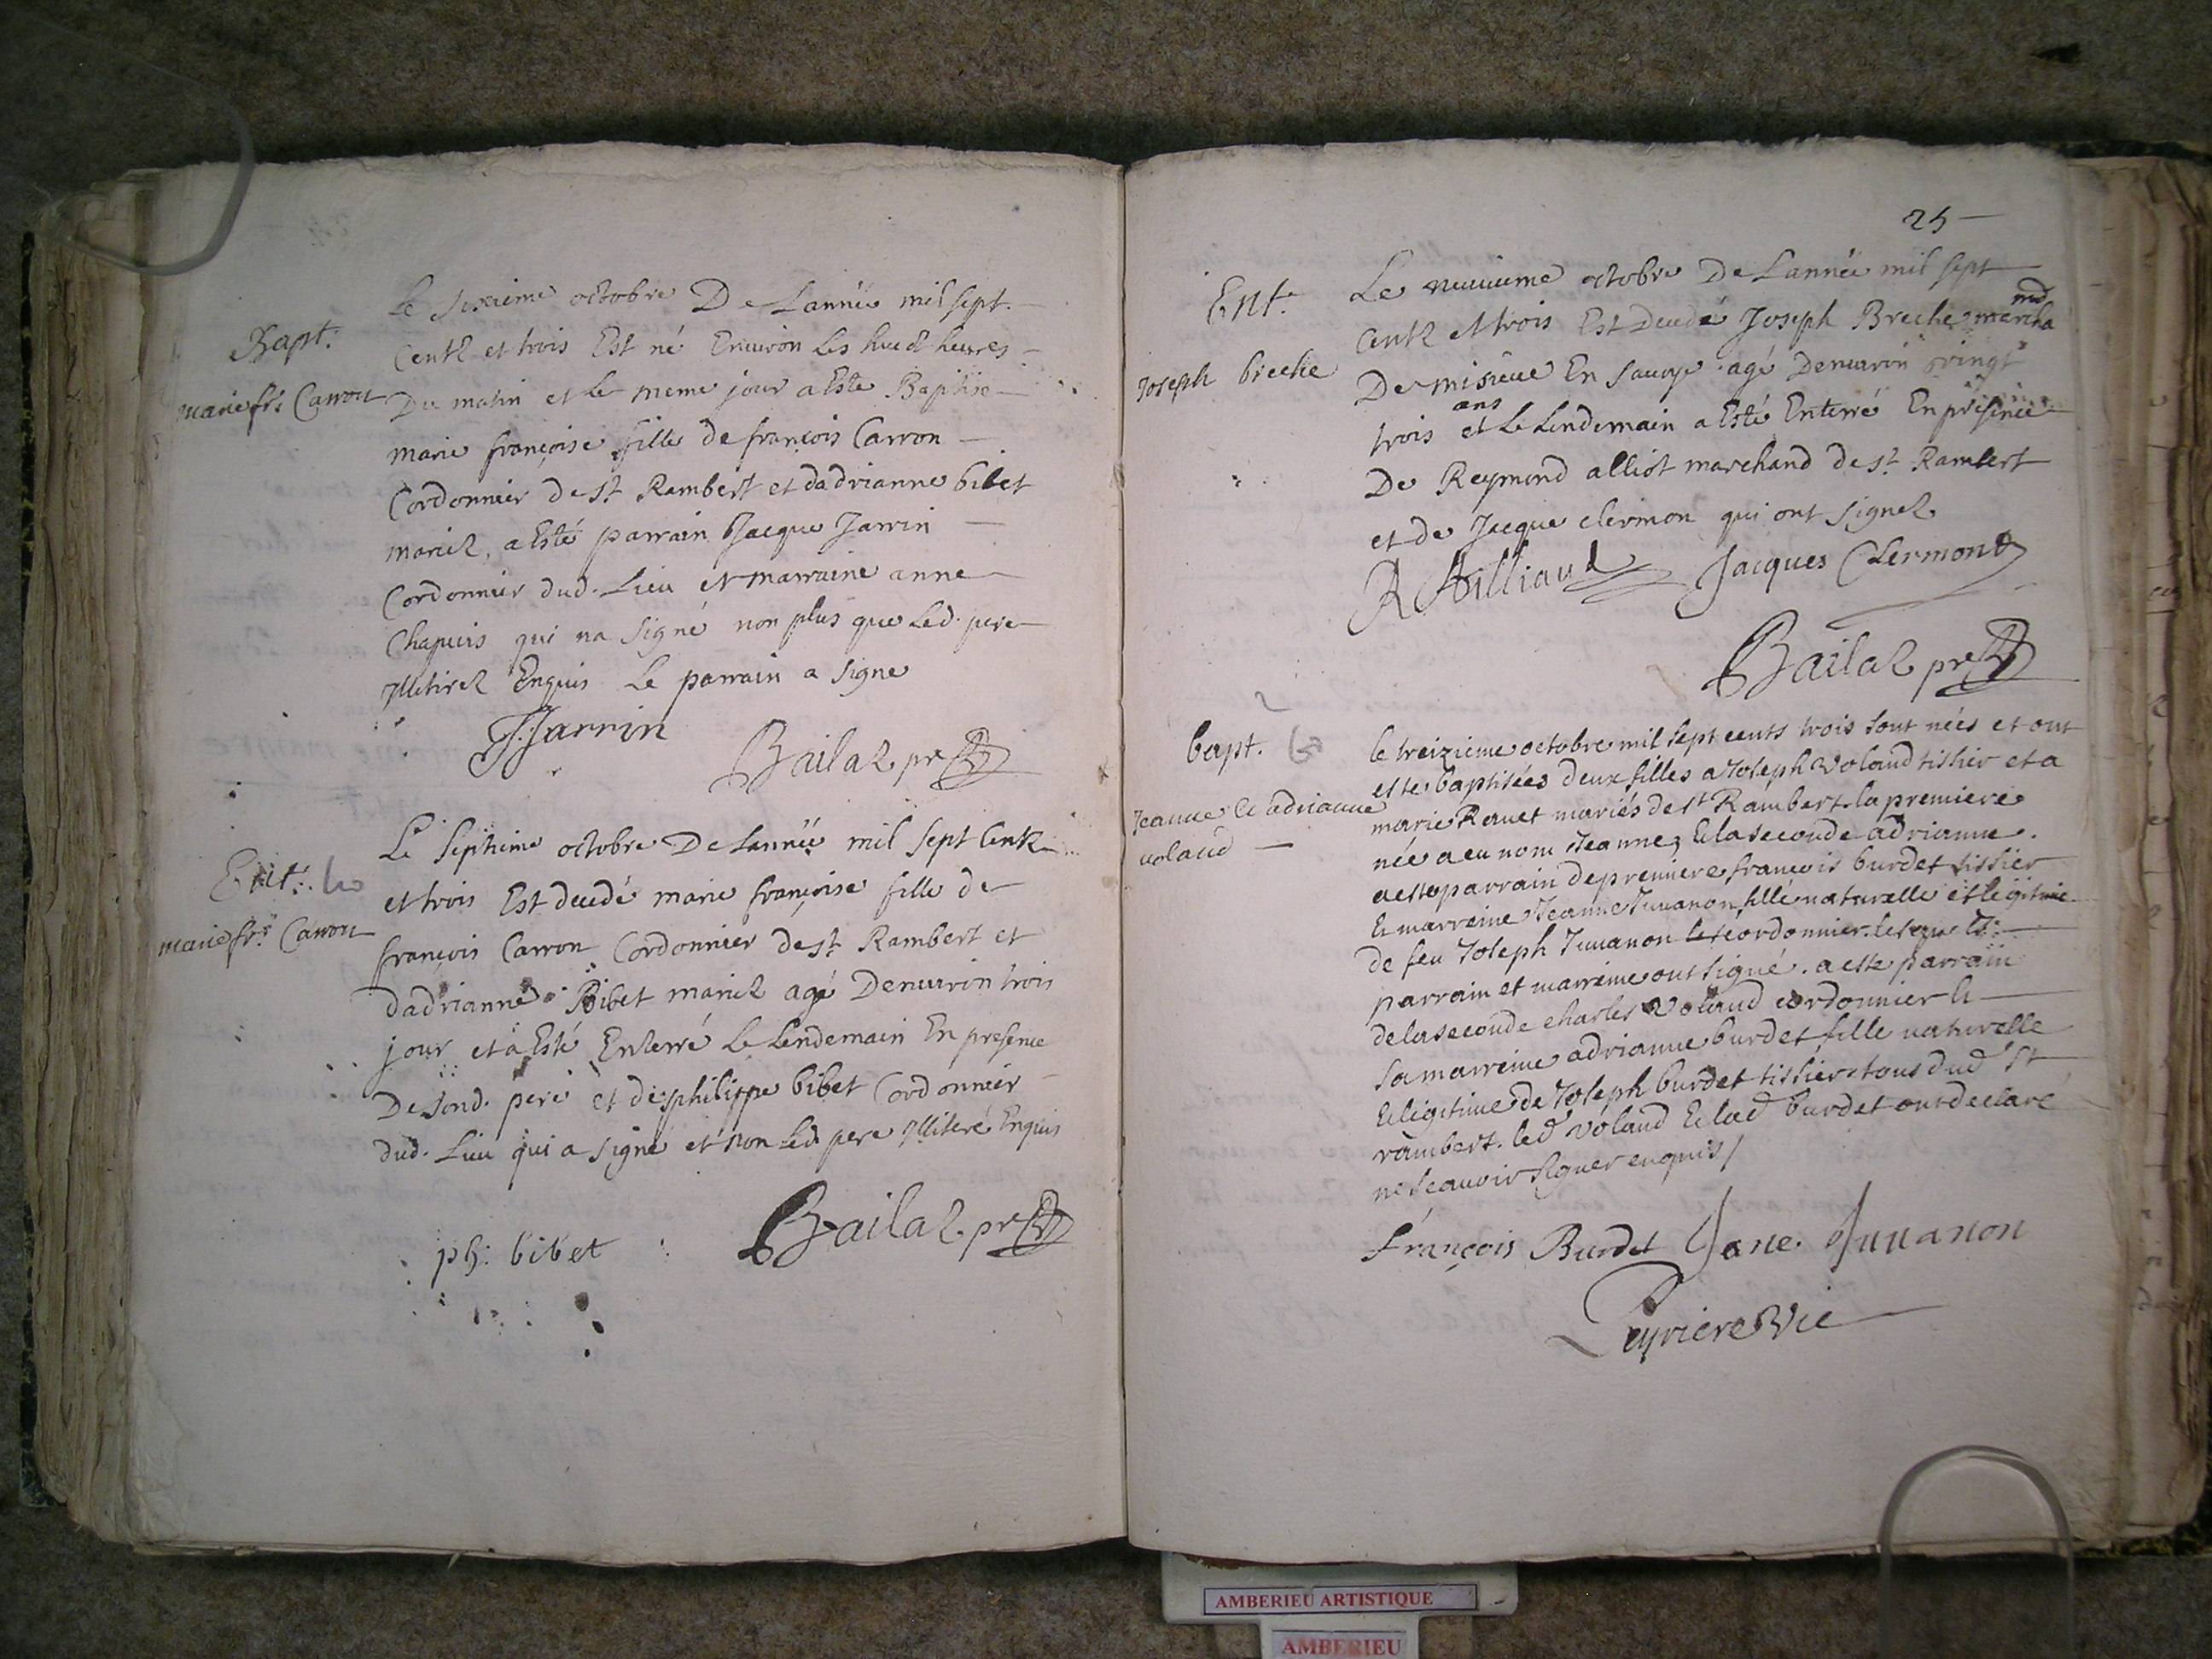 Bapt.
marie frse Carron
Le sixieme octobre De Lannée mil sept
Centz et trois Est né Environ Les huict heures
Du matin et le meme jour a Esté Baptisé
marie françoise fille de françois Carron
Cordonnier de st Rambert et dadrianne bibet
mariez, a Esté parrain Jacque Jarrin
Cordonnier dud. Lieu et marraine anne
Chapuis qui na signé non plus que Led. pere
Illitirez Enquis Le parrain a signe
J Jarrin
Bailaz pre
Ent.
marie frse Carron
Le septieme octobre De Lannée mil sept Centz
et trois Est decedé marie françoise fille de
françois Carron Cordonnier de st Rambert et
dadrianne Bibet mariez agé Denuiron trois
jour et a Esté Enterré Le Lendemain En presence
De sond. pere et de philippe bibet Cordonnier
dud. Lieu qui a signé et non Led. pere Illiteré Enquis
ph: bibet
Bailaz pre
25
Ent.
Joseph breche
Le neuuieme octobre De Lannée mil sept
Centz et trois Est Decedé Joseph Breche marcha
nd
De misieue En sauoye agé Denuiron vingt
trois ans et Le Lendemain a Esté Enterré En presence
De Reymond alliot marchand de st Rambert
et de Jacque clermon qui ont signez
R Alliaud
Jacques Clermont
Bailaz pre
bapt.
2
Jeanne & adrianne
uoland
le treizieme octobre mil sept cents trois sont nées et ont
este baptisées deux filles a Joseph Voland tissier et a
marie Rauet mariés de st Rambert. la premiere
née a eu nom Jeanne, & la seconde adrianne.
a este parrain de premiere francois burdet tissier
& marreine Jeanne Juuanon fille naturelle et legitime
de feu Joseph Juuanon cordonnier. lesquels
parrain et marreine ont signé. a este parrain
de la seconde charles Voland cordonnier &
sa marreine adrianne burdet fille naturelle
& legitime de Joseph burdet tissier tous dud st
rambert. led Voland & lad burdet ont declaré
ne scauoir signer enquis /
françois Burdet
Jane Juuanon
Peyriere Vic
AMBERIEU ARTISTIQUE
AMBERIEU